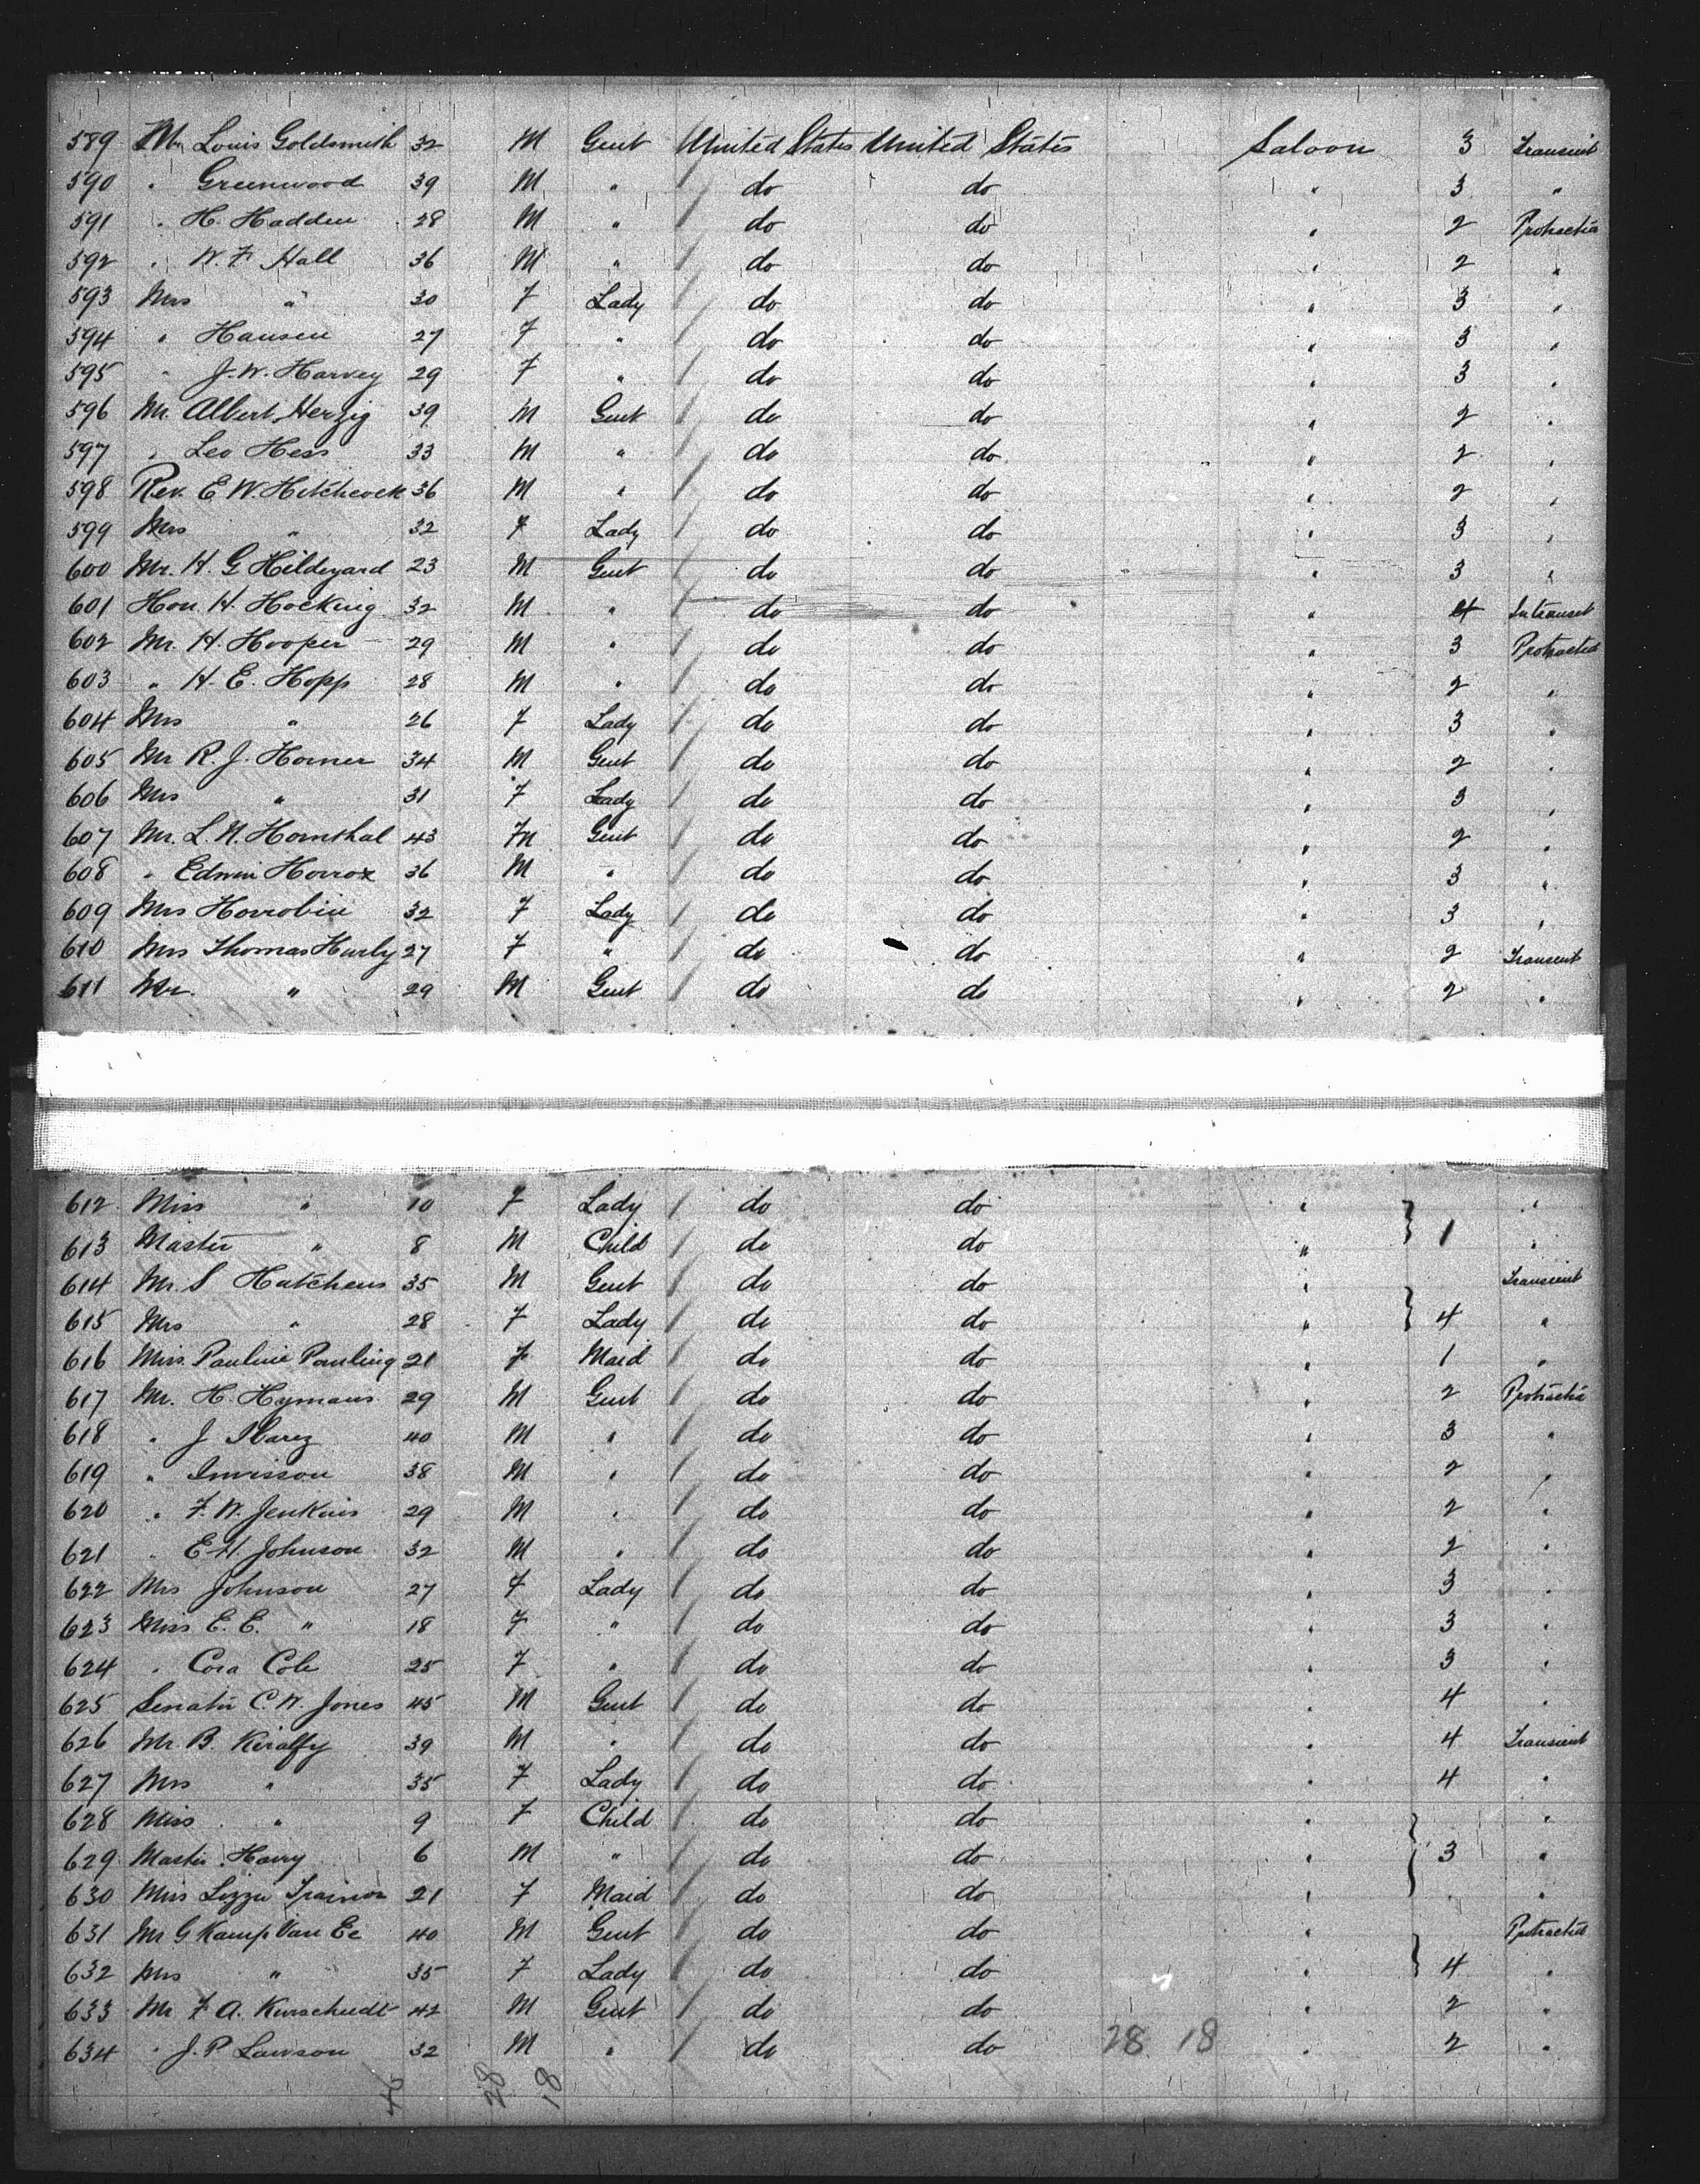 589 Mr Louis Goldsmith 32 M Gent United States United States Saloon 3 Transient
590 " Greenwood 39 M " do do " 3 "
591 " H. Hadden 28 M " do do " 2 Protracted
592 " W. F. Hall 36 M " do do " 2 "
593 Mrs " 30 F Lady do do " 3 "
594 " Hansen 27 F " do do " 3 "
595 " J. W. Harvey 29 F " do do " 3 "
596 Mr. Albert Herzig 39 M Gent do do " 2 "
597 " Leo Hess 33 M " do do " 2 "
598 Rev. E. W. Hitchcock 36 M " do do " 2 "
599 Mrs " 32 F Lady do do " 3 "
600 Mr. H. G Hildeyard 23 M Gent do do " 3 "
601 Hon. H. Hocking 32 M " do do " 4 Intransit
602 Mr. H. Hooper 29 M " do do " 3 Protracted
603 " H. E. Hopp 28 M " do do " 2 "
604 Mrs " 26 F Lady do do " 3 "
605 Mr R. J. Horner 34 M Gent do do " 2 "
606 Mrs " 31 F Lady do do " 3 "
607 Mr. L. N. Hornthal 43 M Gent do do " 2 "
608 " Edwin Horrox 36 M " do do " 3 "
609 Mrs Horrobin 32 F Lady do do " 3 "
610 Mrs Thomas Hurly 27 F " do do " 2 Transient
611 Mr. " 29 M Gent do do " 2 "
612 Miss " 10 F Lady do do " "
613 Master " 8 M Child do do " 1 "
614 Mr. S Hutchens 35 M Gent do do " Transient
615 Mrs " 28 F Lady do do " 4 "
616 Miss Pauline Pauling 21 F Maid do do " 1 "
617 Mr. H. Hymans 29 M Gent do do " 2 Protracted
618 " J Ibarez 40 M " do do " 3 "
619 " 38 M " do do " 2 "
620 " F. W. Jenkins 29 M " do do " 2 "
621 " E. H. Johnson 32 M " do do " 2 "
622 Mrs Johnson 27 F Lady do do " 3 "
623 Miss E. E. " 18 F " do do " 3 "
624 " Cora Cole 25 F " do do " 3 "
625 Senator C. W. Jones 45 M Gent do do " 4 "
626 Mr. B. Kiralfy 39 M " do do " 4 Transient
627 Mrs " 35 F Lady do do " 4 "
628 Miss " 9 F Child do do " "
629 Master Harry 6 M " do do " 3 "
630 Miss Lizzie Trainor 21 F Maid do do " "
631 Mr G Kamp Van Ee 40 M Gent do do " Protracted
632 Mrs " 35 F Lady do do " 4 "
633 Mr F. A. Kurscheedt 42 M Gent do do " 2 "
634 " J. P. Lawson 32 M " do do 28 18 " 2 "
46 28 18